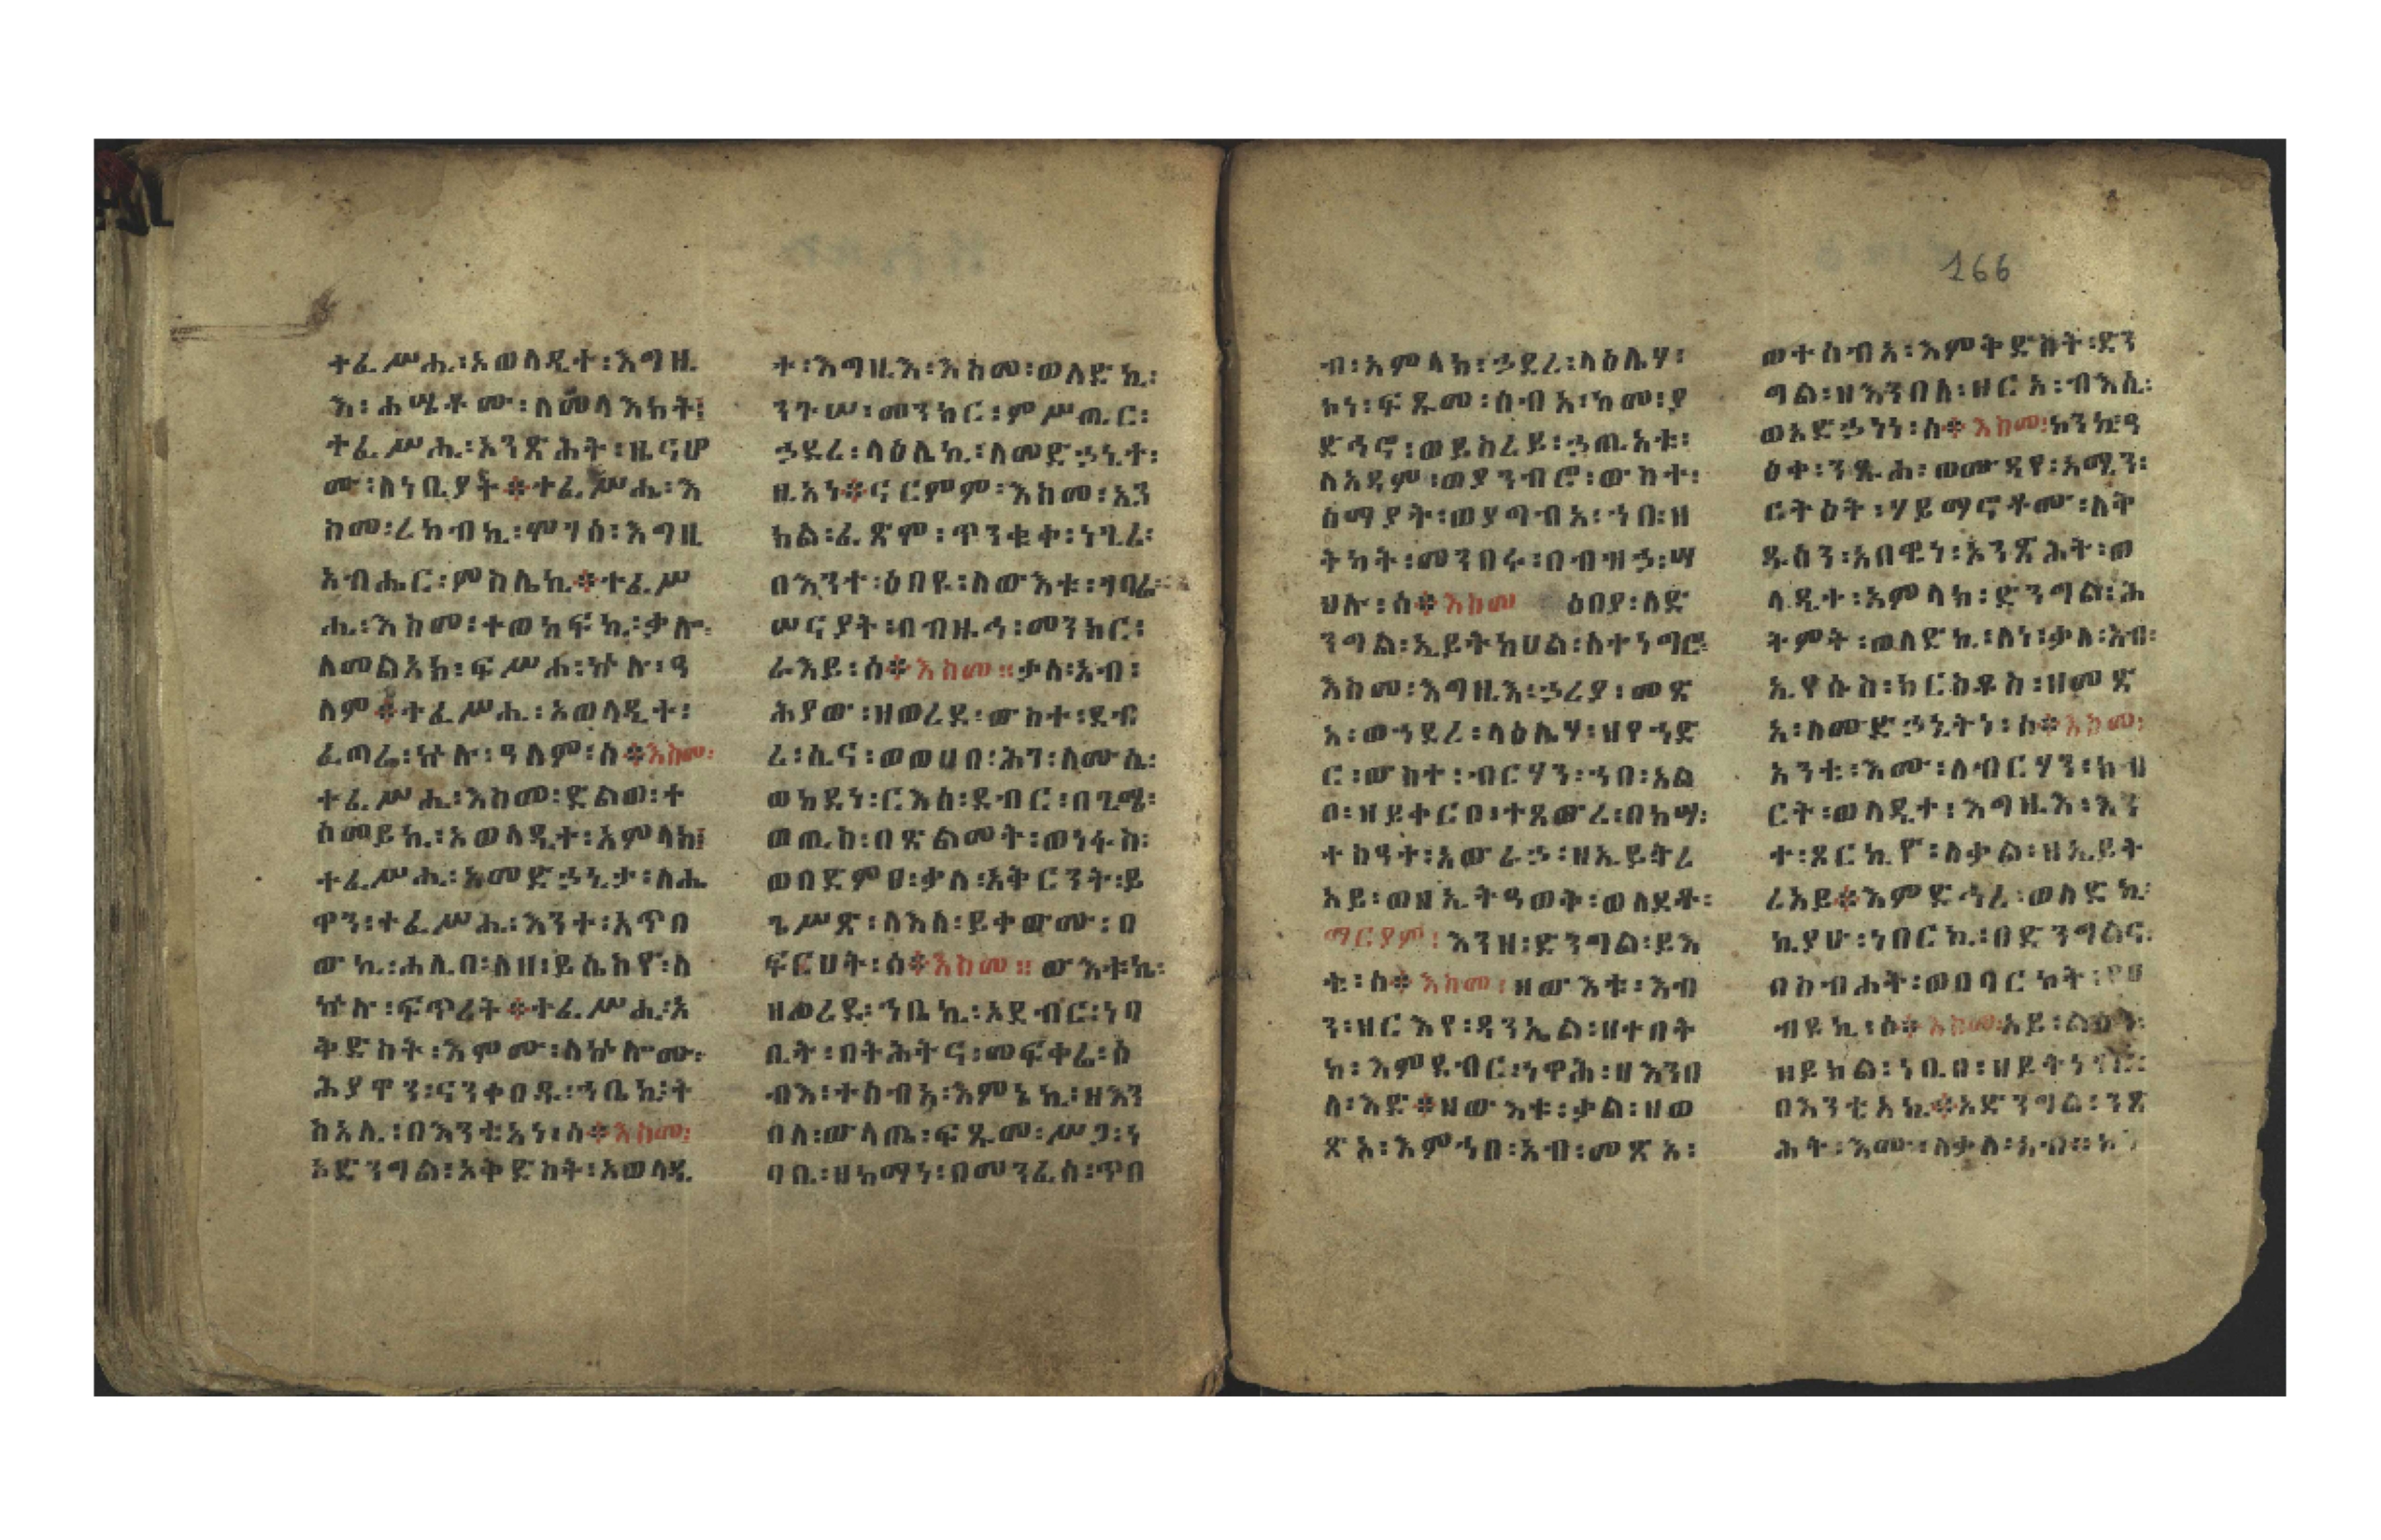 ተፈሥሒ፡አወላዲተ፡እግዚ
እ፡ሐሤቶሙ፡ለመላእክት፡
ተፈሥሒ፡አንጽሕት፡ዜናሆ
ሙ፡ለነቢያት፨ተፈሥሒ፡እ
ስመ፡ረከብኪ፡ሞገሰ፡እግዚ
አብሔር፡ምስሌኪ፨ተፈሥ
ሒ፡እስመ፡ተወከፍኪ፡ቃሎ፡
ለመልአክ፡ፍሥሐ፡ኵሉ፡ዓ
ለም፨ተፈሥሒ፡አወላዲተ፡
ፈጣሬ፡ኵሉ፡ዓለም፡ሰ፨እስመ፡
ተፈሥሒ፡እስመ፡ድልወ፡ተ
ሰመይኪ፡አወላዲተ፡አምላክ፡
ተፈሥሒ፡አመድኃኒታ፡ለሔ
ዋን፡ተፈሥሒ፡እንተ፡አጥበ
ውኪ፡ሐሊበ፡ለዘ፡ይሴስዮ፡ለ
ኵሉ፡ፍጥረት፨ተፈሥሒ፡አ
ቅድስት፡እሞሙ፡ለኵሎሙ፡
ሕያዋን፡ናንቀዐዱ፡ኀቤኪ፡ት
ስአሊ፡በእንቲአነ፡ሰ፨እስመ፡
አድንግል፡አቅድስት፡አወላዲ
ተ፡እግዚእ፡እስመ፡ወለድኪ፡
ንጉሠ፡መንክር፡ምሥጢር፡
ኃደረ፡ላዕሌኪ፡ለመድኃኒተ፡
ዚአነ፨ናርምም፡እስመ፡አን
ክል፡ፈጽሞ፡ጥንቁቀ፡ነጊረ፡
በእንተ፡ዕበዩ፡ለውእቱ፡ገባሬ፡
ሠናያት፡በብዙኅ፡መንክር፡
ራእይ፡ሰ፨እስመ፡፡ቃለ፡አብ፡
ሕያው፡ዘወረደ፡ውስተ፡ደብ
ረ፡ሲና፡ወወሀበ፡ሕገ፡ለሙሴ፡
ወከደነ፡ርእሰ፡ደብር፡በጊሜ፡
ወጢስ፡በጽልመት፡ወነፋስ፡
ወበድምፀ፡ቃለ፡አቅርንት፡ይ
ጌሥጽ፡ለእለ፡ይቀውሙ፡በ
ፍርሀት፡ሰ፨እስመ፡፡ውእቱኬ፡
ዘወረደ፡ኀቤኪ፡አደብር፡ነባ
ቢት፡በትሕትና፡መፍቀሬ፡ሰ
ብእ፡ተሰብአ፡እምኔኪ፡ዘእን
በለ፡ውላጤ፡ፍጹመ፡ሥጋ፡ነ
ባቢ፡ዘከማነ፡በመንፈሰ፡ጥበ
ብ፡አምላክ፡ኃደረ፡ላዕሌሃ፡
ኮነ፡ፍጹመ፡ሰብአ፡ከመ፡ያ
ድኅኖ፡ወይስረይ፡ኃጢአቱ፡
ለአዳም፡ወያንብሮ፡ውስተ፡
ሰማያት፡ወያግብአ፡ኀበ፡ዘ
ትካት፡መንበሩ፡በብዝኃ፡ሣ
ህሉ፡ሰ፨እስመ ዕበያ፡ለድ
ንግል፡ኢይትከሀል፡ለተነግሮ፡
እስመ፡እግዚእ፡ኃረያ፡መጽ
አ፡ወኀደረ፡ላዕሌሃ፡ዘየኀድ
ር፡ውስተ፡ብርሃን፡ኀበ፡አል
በ፡ዘይቀርቦ፡ተጸውረ፡በከሣ፡
ተስዓተ፡አውራኃ፡ዘኢይትረ
አይ፡ወዘኢትዓወቅ፡ወለደቶ፡
ማርያም፡እንዘ፡ድንግል፡ይእ
ቲ፡ሰ፨እስመ፡ዘውእቱ፡እብ
ን፡ዘርእየ፡ዳንኤል፡ዘተበት
ከ፡እምደብር፡ነዋሕ፡ዘእንበ
ለ፡እድ፨ዘውእቱ፡ቃል፡ዘወ
ጽአ፡እምኀበ፡አብ፡መጽአ፡
ወተሰብአ፡እምቅድስት፡ድን
ግል፡ዘእንበለ፡ዘርአ፡ብእሲ፡
ወአድኃነነ፡ሰ፨እስመ፡ኮንኪ፡ዓ
ዕቀ፡ንጹሐ፡ወሙዳየ፡አሚን፡
ርትዕት፡ሃይማኖቶሙ፡ለቅ
ዱሳን፡አበዊነ፡አንጽሕት፡ወ
ላዲተ፡አምላክ፡ድንግል፡ሕ
ትምት፡ወለድኪ፡ለነ፡ቃለ፡አብ፡
ኢየሱስ፡ክርስቶስ፡ዘመጽ
አ፡ለመድኃኒትነ፡ሰ፨እስመ፡
አንቲ፡እሙ፡ለብርሃን፡ክብ
ርት፡ወላዲተ፡እግዚእ፡እን
ተ፡ጾርኪዮ፡ለቃል፡ዘኢይት
ረአይ፨እምድኅረ፡ወለድኪ፡
ኪያሁ፡ነበርኪ፡በድንግልና፡
በስብሐት፡ወበባርኮት፡የዐ
ብዩኪ፡ሰ፨እስመ፡አይ፡ልሳን፡
ዘይክል፡ነቢበ፡ዘይትነገር፡
በእንቲአኪ፨አድንግል፡ንጽ
ሕት፡እሙ፡ለቃለ፡አብ፡፡ኮን